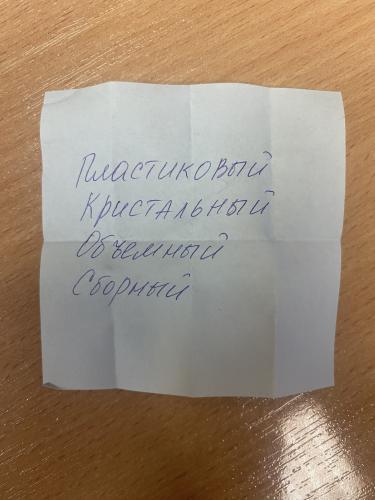 Пластиковый
Кристальный
Объемный
Сборный